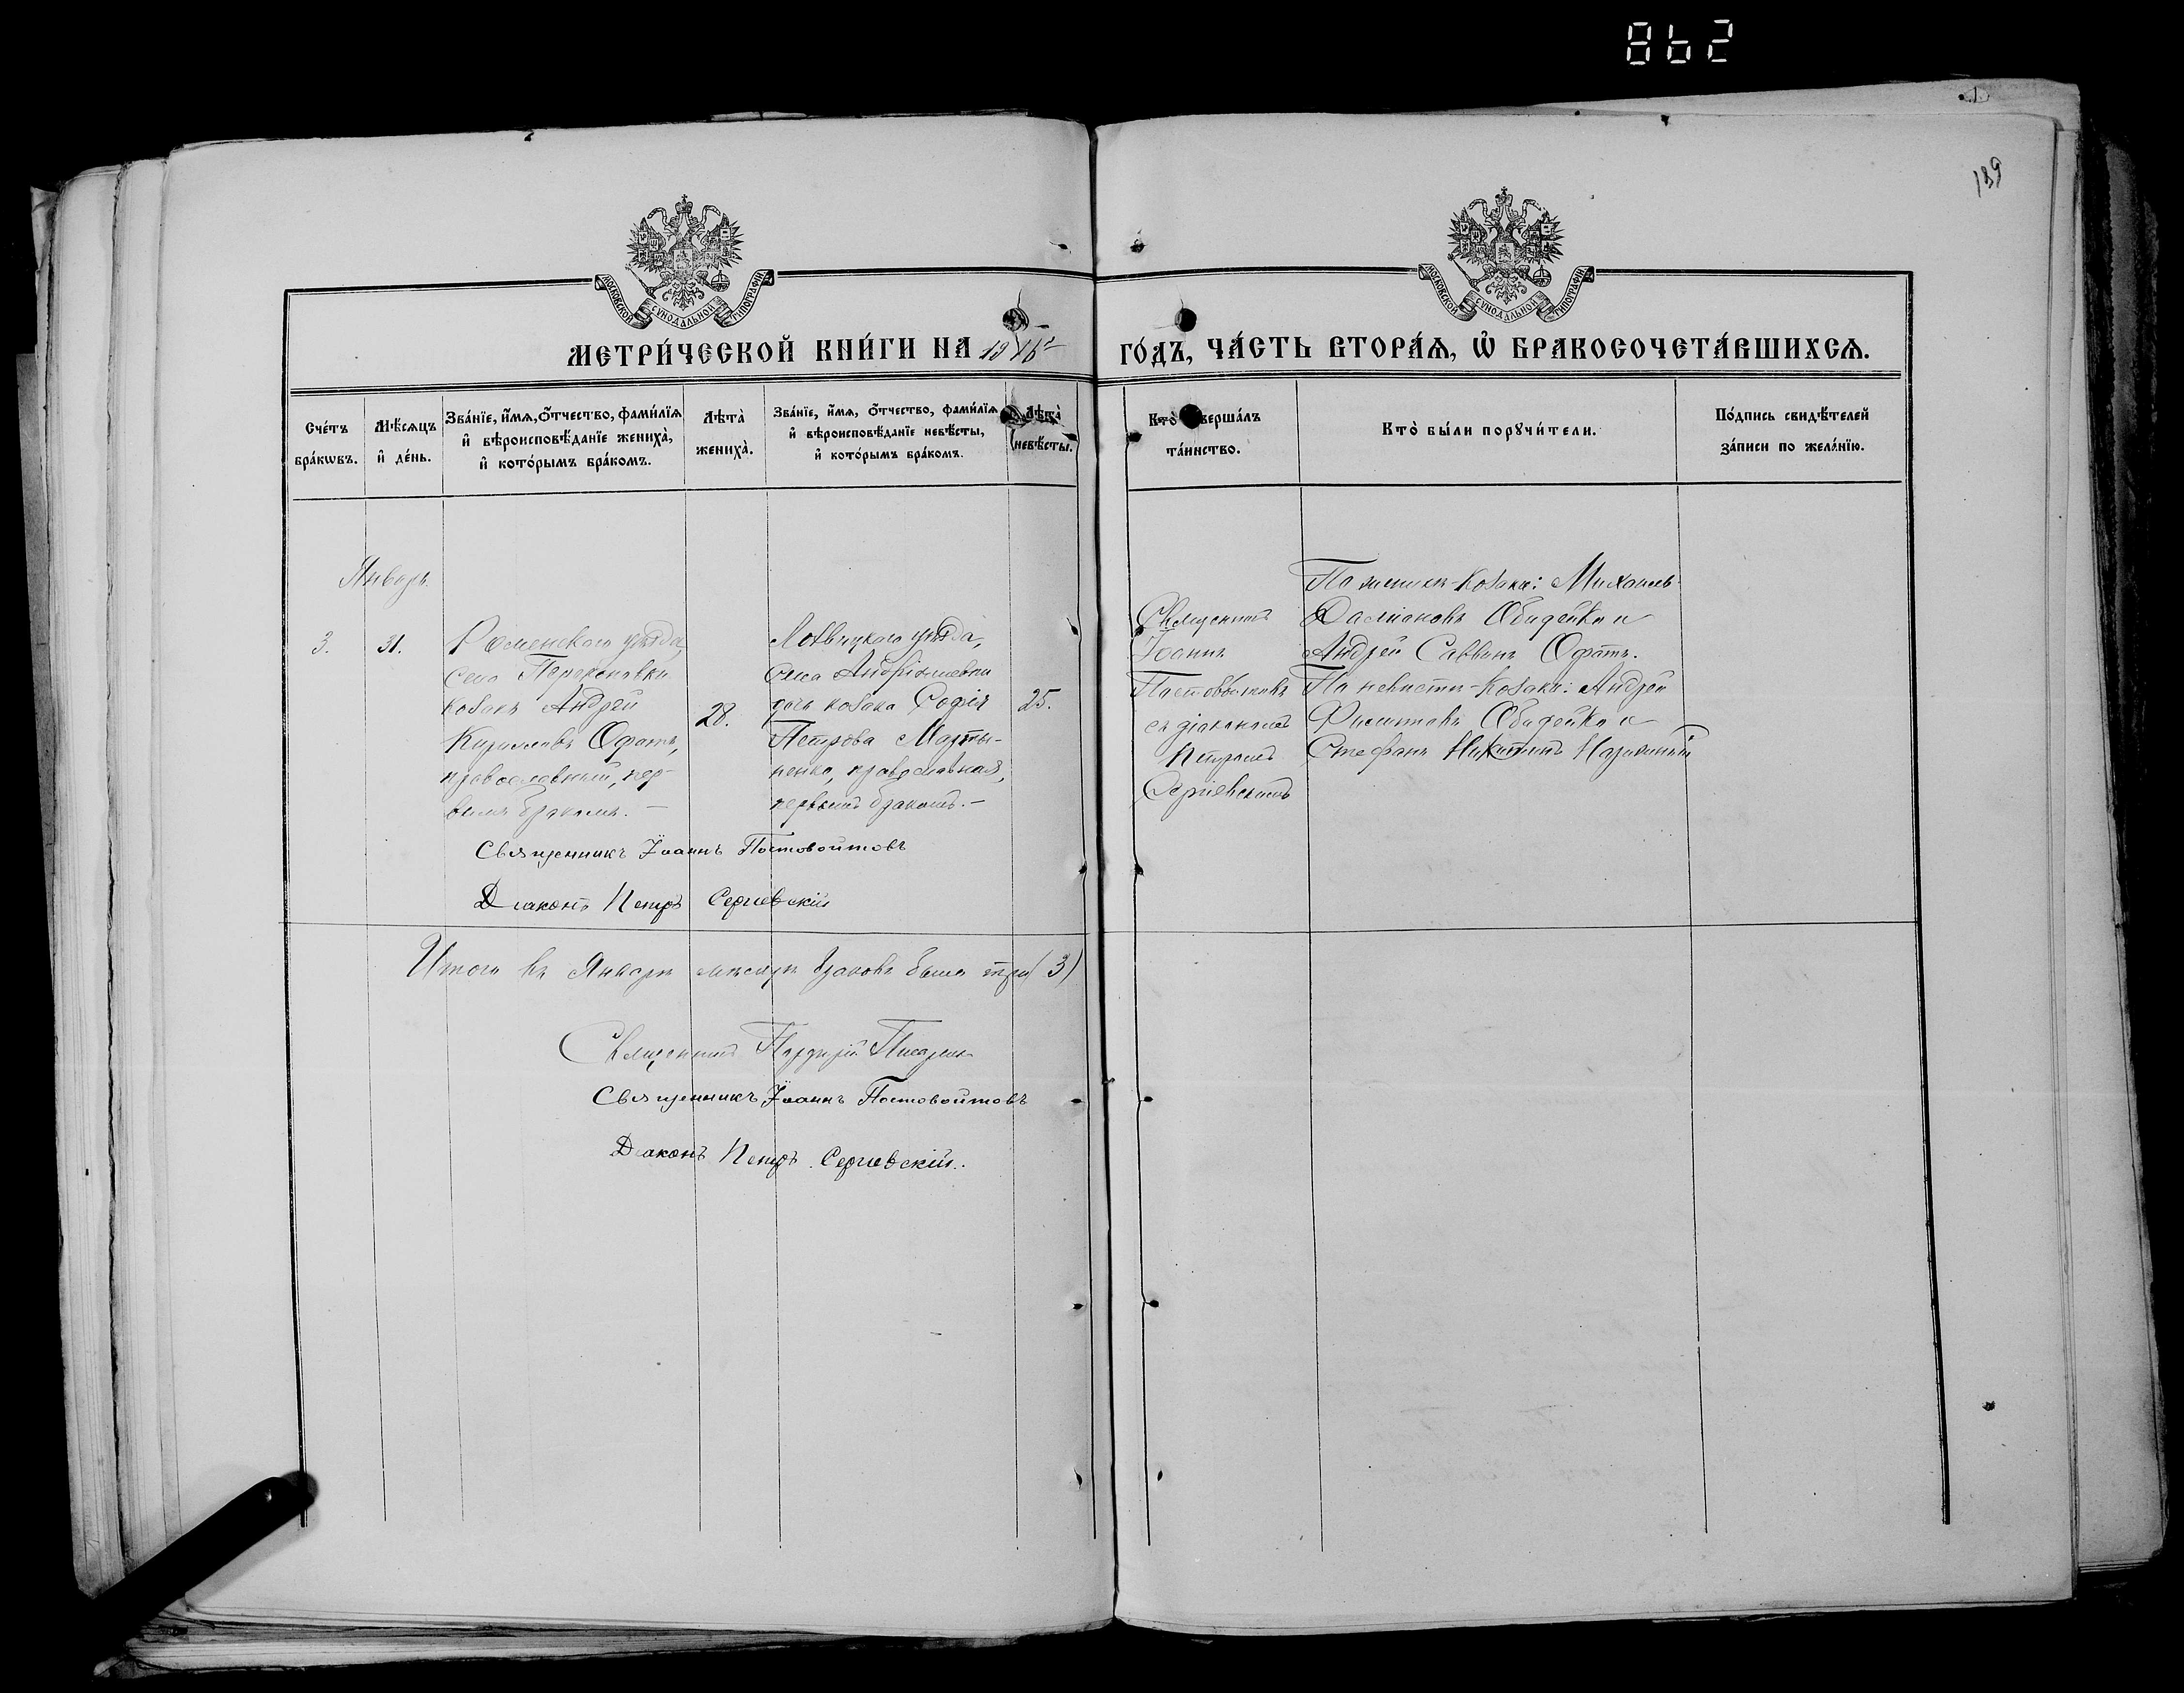 862
189
МОСКОВСКОЙ СѴНОДАЛЬНОЙ ТИПОГРАФІИ
МОСКОВСКОЙ СѴНОДАЛЬНОЙ ТИПОГРАФІИ
МЕТРИ́ЧЕСКОЙ КНИ́ГИ НА 1916
ГО́ДЪ, ЧА́СТЬ ВТОРА́Ѧ, Ѡ҆ БРАКОСОЧЕТА́ВШИХСѦ.
Сче́тъ бра́кѡвъ.
Мѣ́сѧцъ и҆ де́нь.
Зва́нїе, и҆́мѧ, ѻ҆́тчество, фами́лїѧ и҆ вѣроисповѣ́данїе жениха̀, и҆ кото́рымъ бра́комъ.
Лѣта̀ жениха̀.
Зва́нїе, и҆́мѧ, ѻ҆́тчество, фами́лїѧ и҆ вѣроисповѣ́данїе невѣ́сты, и҆ кото́рымъ бра́комъ.
Лѣта̀ невѣ́сты.
Кто̀ соверша́лъ та́инство.
Кто̀ бы́ли порꙋчи́тели.
По́дпись свидѣ́телей за́писи по жела́нїю.
Январь
3.
31.
Роменскаго уѣзда,
села Перекоповки
козакъ Андрей
Кириловъ Офатъ,
православный, пер-
вымъ бракомъ. —
28.
Лохвицкаго уѣзда,
села Андріяшевки
дочь козака Софія
Петрова Марты-
ненко, православная,
первымъ бракомъ. —
25.
Священникъ
Іоаннъ
Постовойтовъ
съ діакономъ
Петромъ
Сергіевскимъ
По женихѣ - козаки: Михаилъ
Даміановъ Обидейко и
Андрей Саввинъ Офатъ.
По невѣстѣ - козаки: Андрей
Филипповъ Обидейко и
Стефанъ Никитинъ
Священникъ Іоаннъ Постовойтовъ
Діаконъ Петръ Сергіевскій
Итого въ Январѣ мѣсяцѣ браковъ было три (3)
Священникъ
Священникъ Іоаннъ Постовойтовъ
Діаконъ Петръ Сергіевскій.